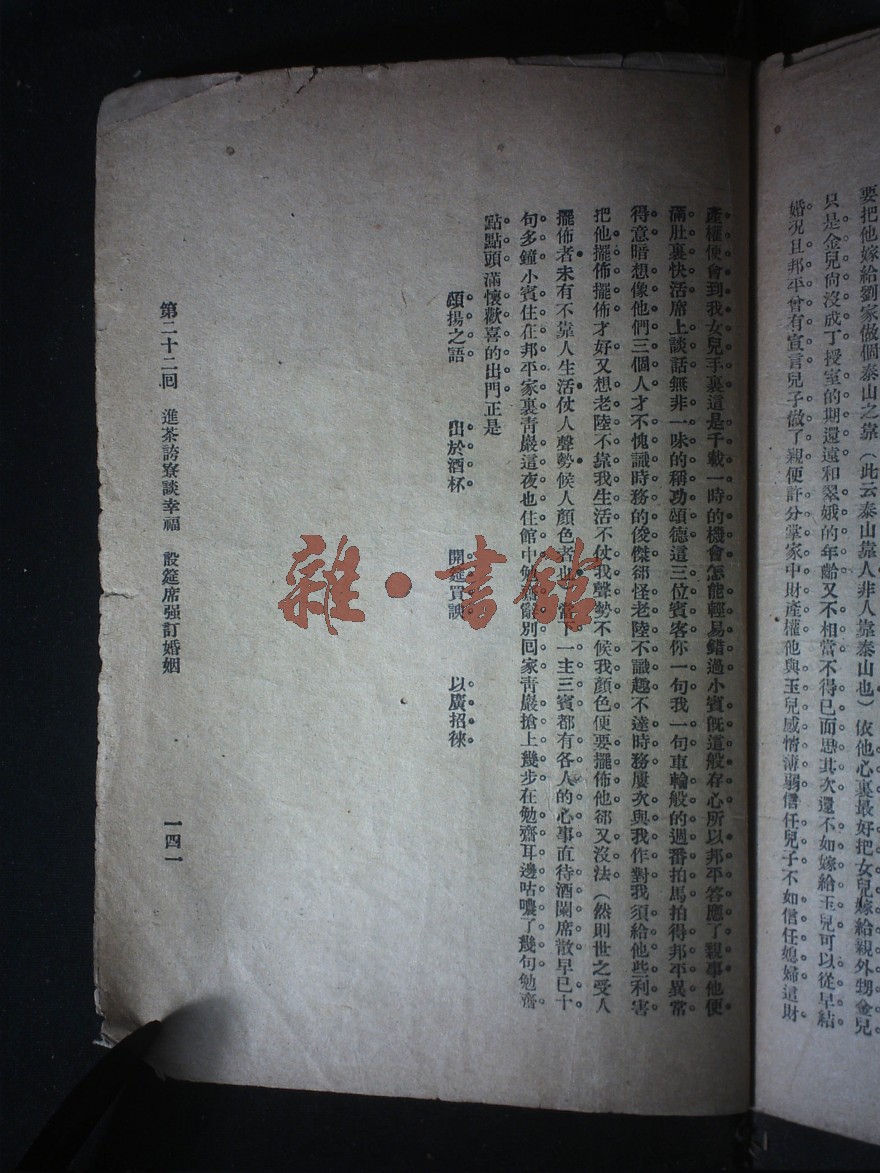 要把他嫁給劉家做個泰山之靠（此云泰山靠人非人靠泰山也）依他心裏最好把女兒嫁給親外甥金兒
只是金兒尙沒成丁授室的期還遠和翠娥的年齡又不相當不得已而思其次還不如嫁給玉兒可以從早結
婚況且邦平曾有宣言兒子做了親便許分掌家中財產權他與玉兒感情薄弱信任兒子不如信任媳婦這財
產權便會到我女兒手裏這是千載一時的機會怎能輕易錯過小賓旣這般存心所以邦平答應了親事他便
滿肚裏快活席上談話無非一味的稱功頌德這三位賓客你一句我一句車輪般的週番拍馬拍得邦平異常
得意暗想像他們三個人才不愧識時務的俊傑卻怪老陸不識趣不達時務屢次與我作對我須給他些利害
把他擺佈擺佈才好又想老陸不靠我生活不仗我聲勢不候我顏色便要擺佈他卻又沒法（然則世之受人
擺佈者未有不靠人生活仗人聲勢候人顏色者也）當下一主三賓都有各人的心事直待酒闌席散早已十
句多鐘小賓住在邦平家裏靑巖這夜也住館中勉齋辭別回家靑巖搶上幾步在勉齋耳邊咕噥了幾句勉齋
點點頭滿懷歡喜的出門正是
頌揚之語　出於酒杯　開筵買諛　以廣招徠
第二十二回　進茶誇寮談幸福　設筵席强訂婚姻　一四一
雜·書館